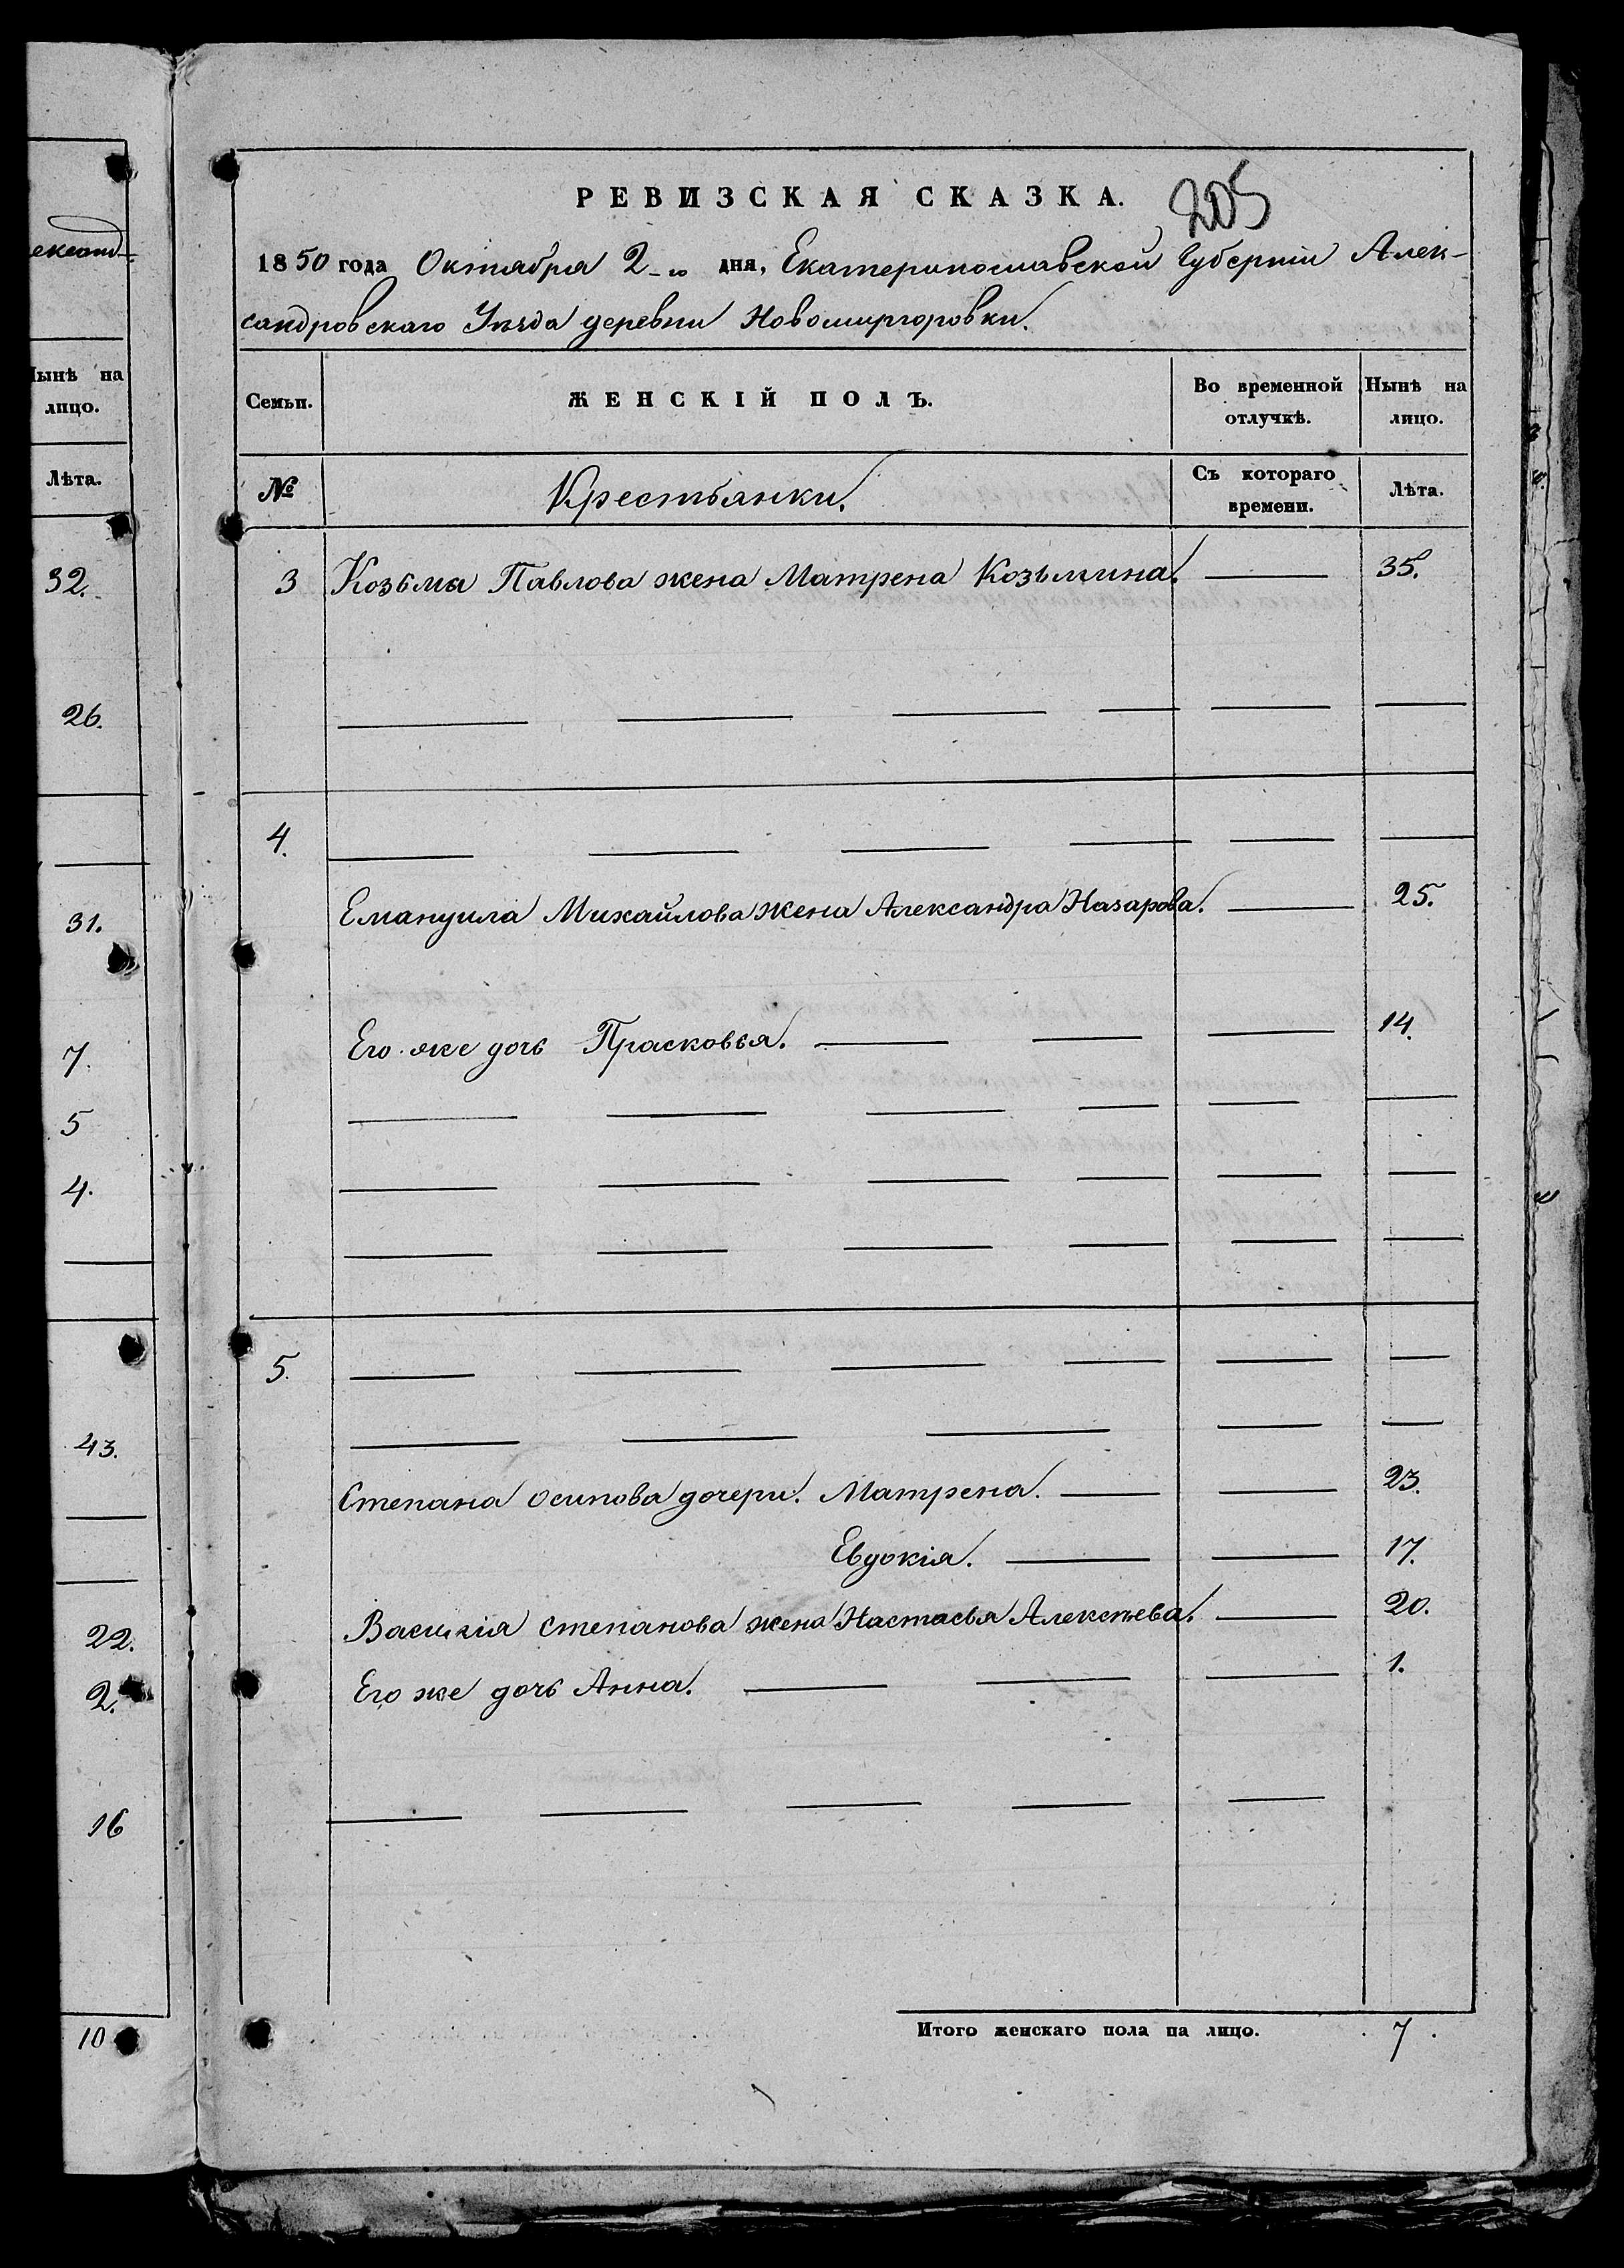 РЕВИЗСКАЯ СКАЗКА.
205
1850 года Октября 2-го дня, Екатеринославской Губерніи Алек-
сандровскаго Уѣзда деревни Новомиргоровки.
Семьи.
ЖЕНСКІЙ ПОЛЪ.
Во временной отлучкѣ.
Нынѣ на лицо.
№
Крестьянки.
Съ котораго времени.
Лѣта.
3 Козьма Павлова жена Матрена Козьмина. 35.
4.
Емануила Михайлова жена Александра Назарова. 25.
Его же дочь Прасковья. 14.
5.
Степана Осипова дочери. Матрена. 23.
Евдокія. 17.
Василія Степанова жена Настасья Алексѣева. 20.
Его же дочь Анна. 1.
Итого женскаго пола на лицо. 7.
ександ-
Нынѣ на
лицо.
Лѣта.
32.
26.
31.
7.
5
4.
43.
22.
2.
16
10